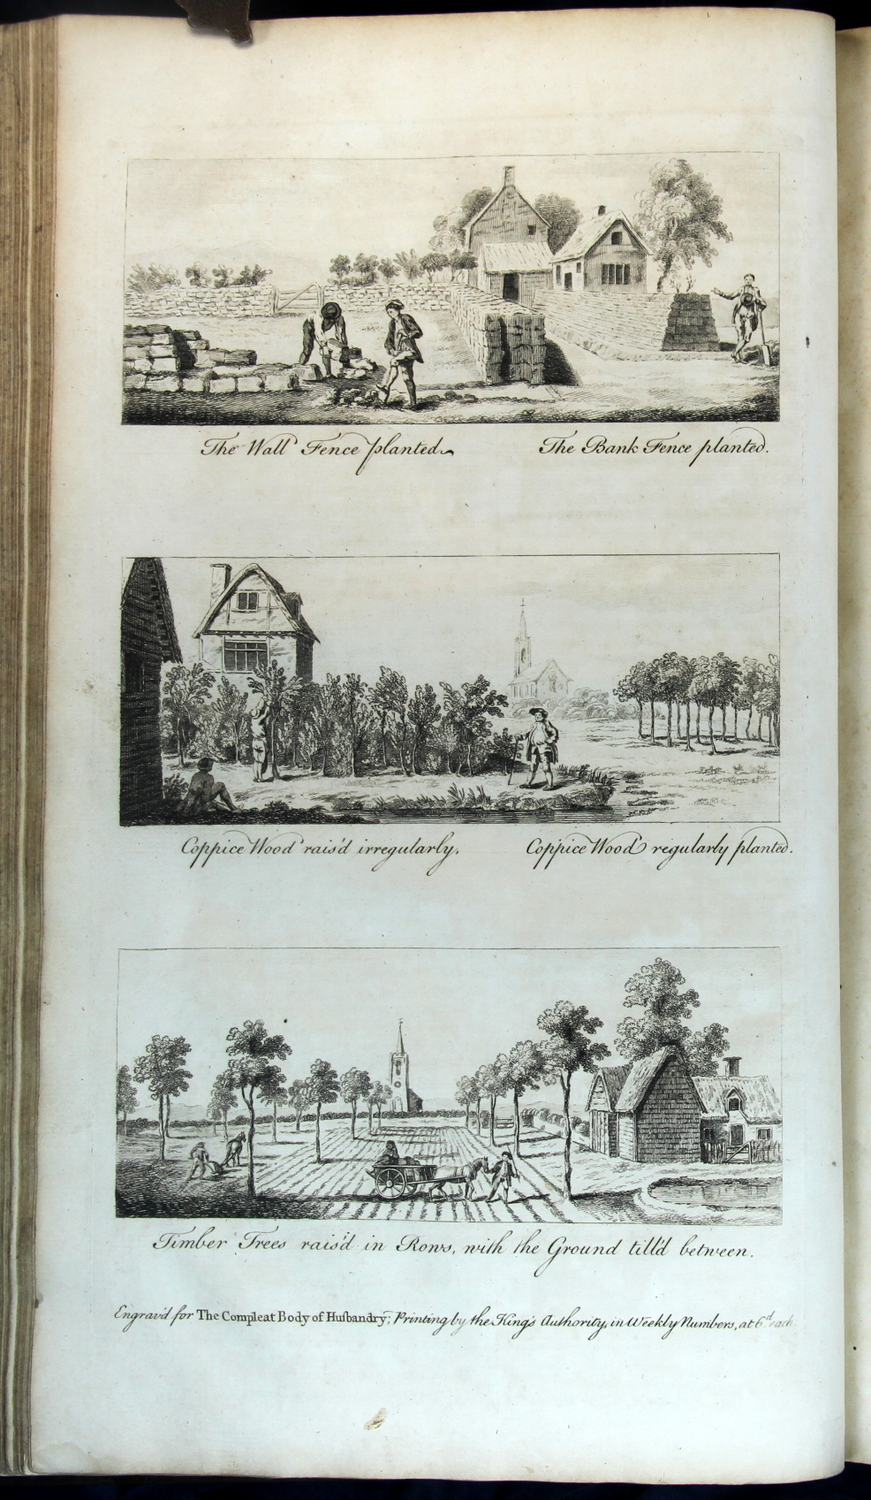 The Wall Fence planted.
The Bank Fence planted.
Coppice Wood rais'd irregularly.
Coppice Wood regularly planted.
Timber Trees rais'd in Rows, with the Ground till'd between.
Engrav'd for The Compleat Body of Huſbandry; Printing by the King's Authority, in Weekly Numbers, at 6.d each.